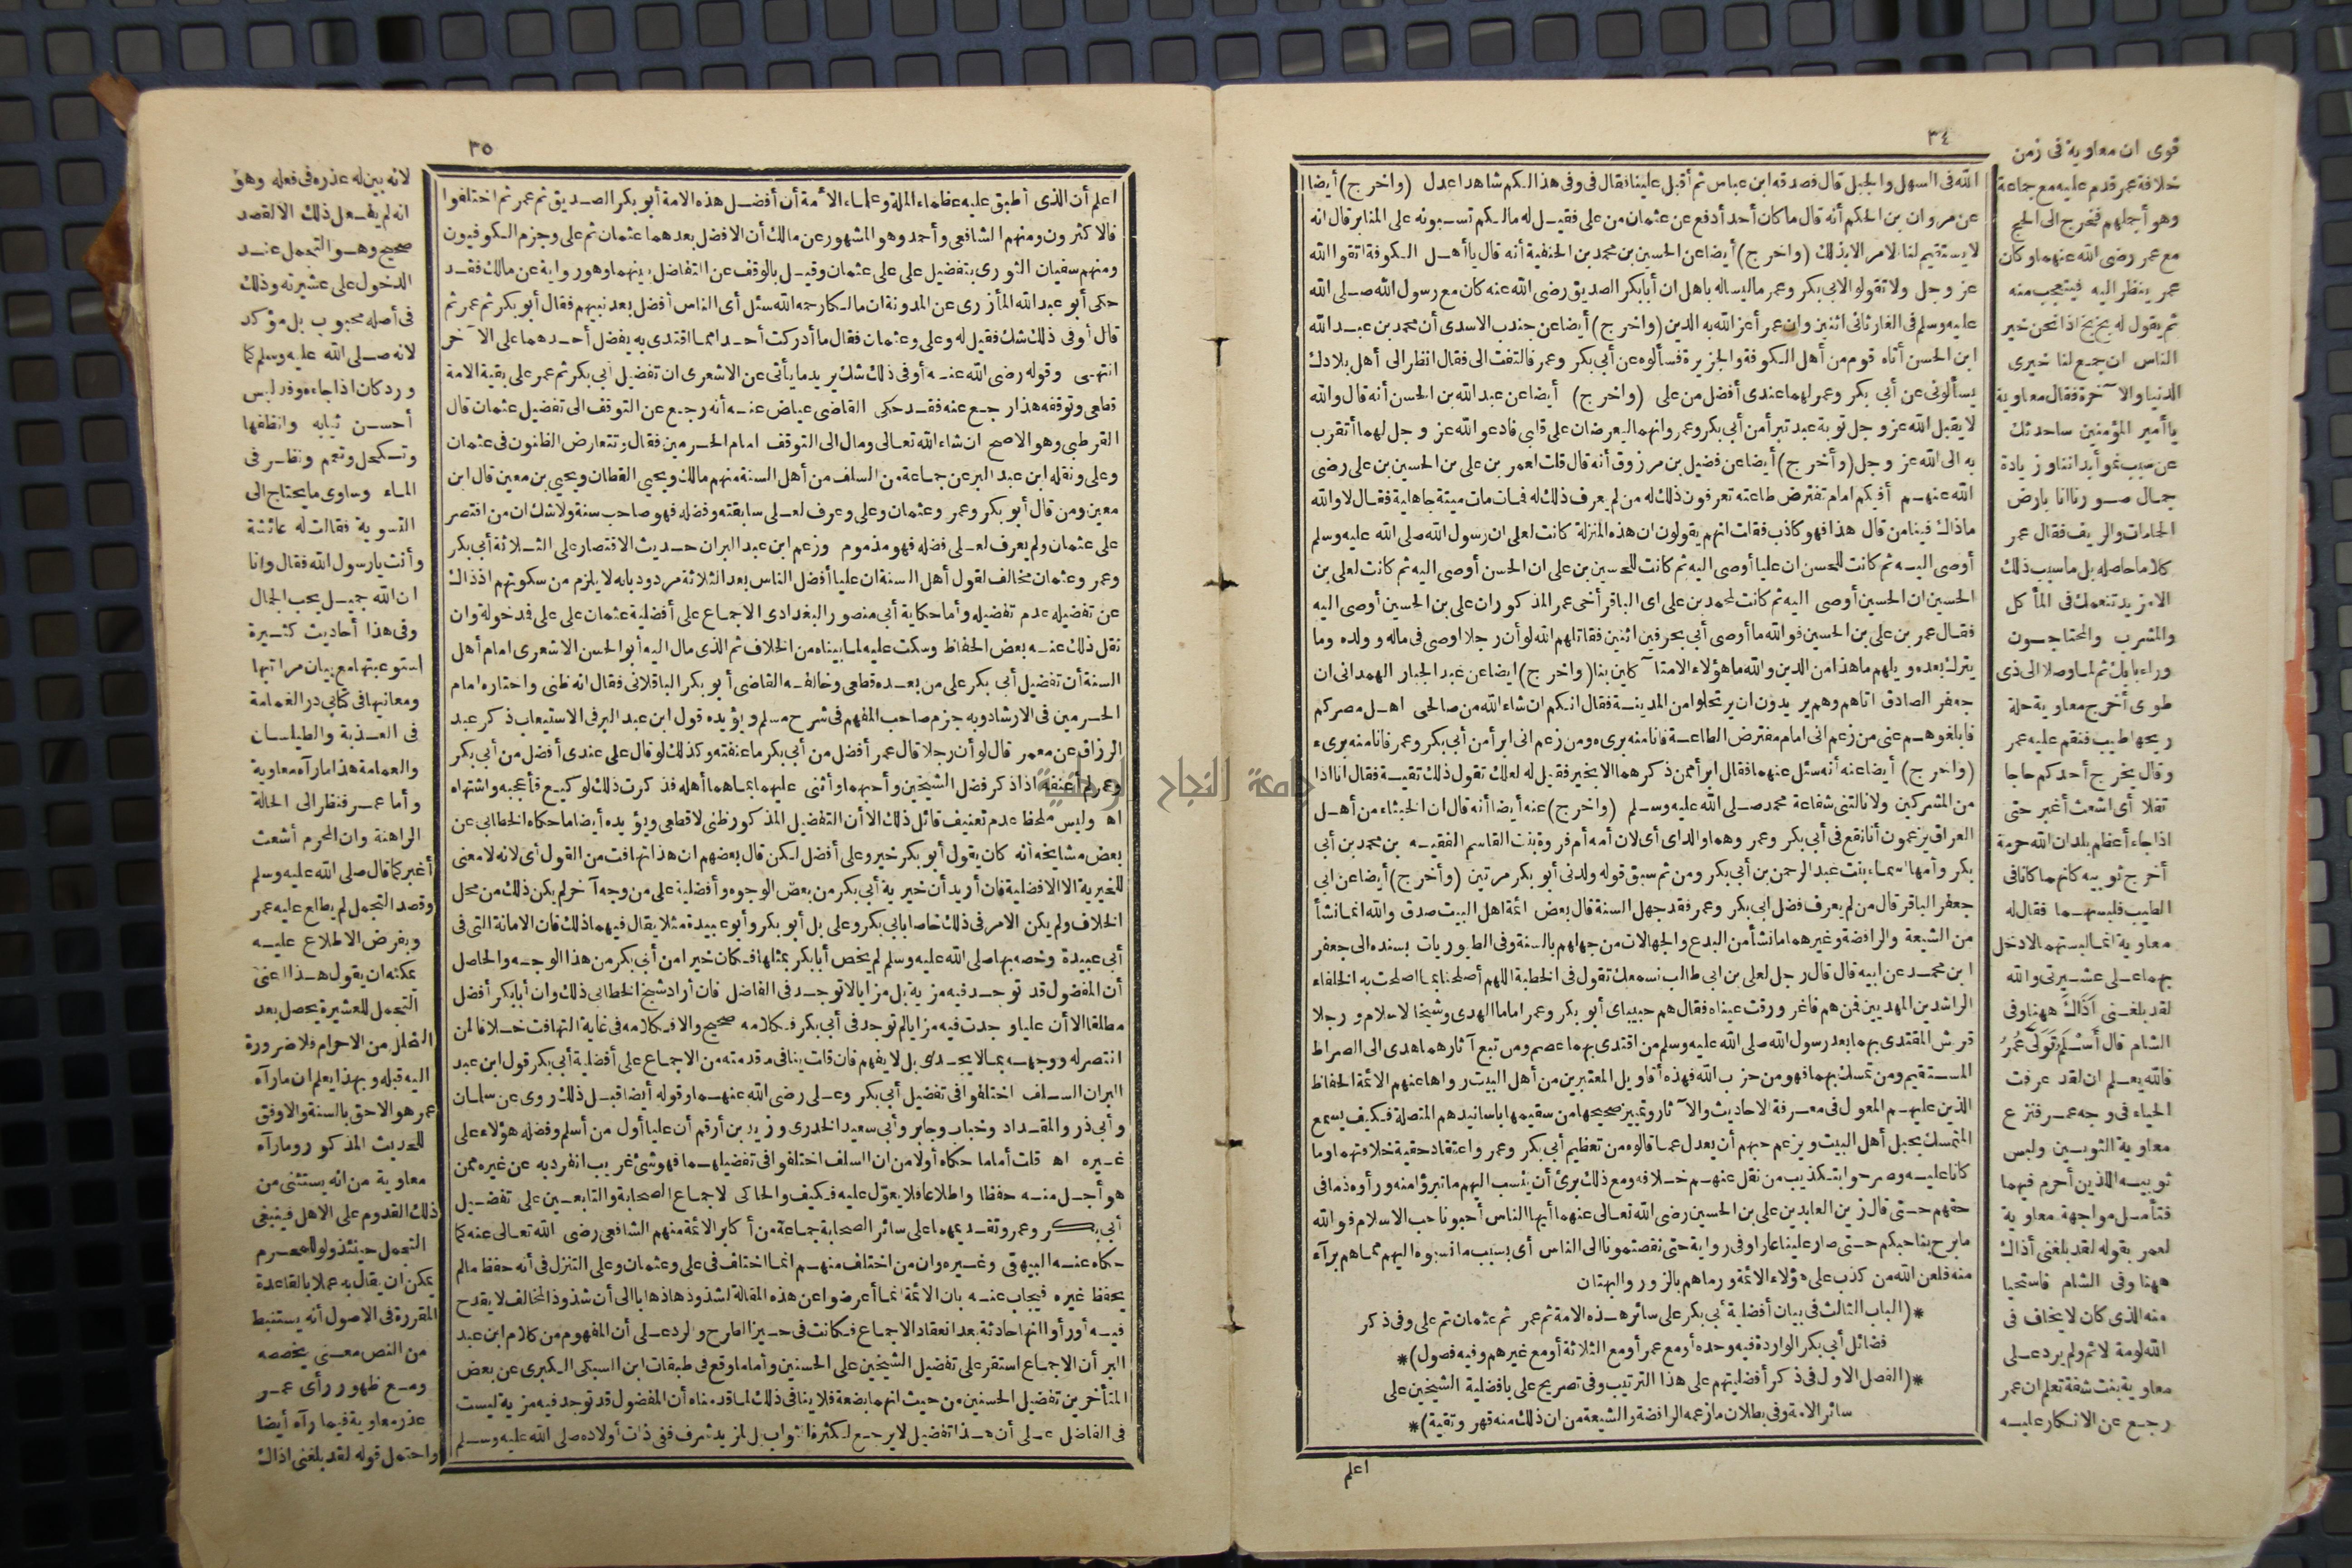 ٣٤
الله فى السهل والجبل قال فصدقه ابن عباس ثم أقبل علينا فقال فى وفى هذا لكم شاهد اعدل (واخرج) أيضا
عن مروان بن الحكم أنه قال ما كان أحد أدفع عن عثمان من على فقيل له مالكم تسبونه على المنابر قال انه
لا يستقيم لنا الامر الا بذلك (واخرج) أيضا عن الحسين بن محمد بن الحنفية أنه قال يا أهل الكوفة اتقوا الله
عز وجل ولا تقولوا لابى بكر وعمر ما ليسا له باهل ان أبا بكر الصديق رضى الله عنه كان مع رسول الله صلى الله
عليه وسلم فى الغار ثانى اثنين وان عمر أعز الله به الدين (واخرج) أيضا عن جندب الاسدى أن محمد بن عبد الله
ابن الحسن أتاه قوم من أهل الكوفة والجزيرة فسألوه عن أبى بكر وعمر فالتفت الى فقال انظر الى أهل بلادك
يسألونى عن أبى بكر وعمر لهما عندى أفضل من على (واخرج) أيضا عن عبد الله بن الحسن أنه قال والله
لا يقبل الله عز وجل توبة عبد تبرأ من أبى بكر وعمر وانهما ليعرضان على قلبى فادعو الله عز وجل لهما أتقرب
به الى الله عز وجل (وأخرج) أيضا عن فضيل بن مرزوق أنه قال قلت لعمر بن على بن الحسين بن على رضى
الله عنهم أفيكم امام تفترض طاعته تعرفون ذلك له من لم يعرف ذلك له فمات مات ميتة جاهلية فقال لا والله
ماذاك فينا من قال هذا فهو كاذب فقلت انهم يقولون ان هذه المنزلة كانت لعلى ان رسول الله صلى الله عليه وسلم
أوصى اليه ثم كانت للحسن ان عليا أوصى اليه ثم كانت للحسين بن على ان الحسن أوصى اليه ثم كانت لعلى بن
الحسين ان الحسين أوصى اليه ثم كانت لمحمد بن على اى الباقر أخى عمر المذكور ان على بن الحسين أوصى اليه
فقال عمر بن على بن الحسين فوالله ما أوصى أبى بحرفين اثنين فقاتلهم الله لو أن رجلا اوصى فى ماله وولده وما
يترك بعده ويلهم ما هذا من الدين والله ما هؤلاء الا متأكلين بنا (واخرج) ايضا عن عبد الجبار الهمدانى ان
جعفر الصادق اتاهم وهم يريدون ان يرتحلوا من المدينة فقال انكم ان شاء الله من صالحى اهل مصركم
فابلغوهم عنى من زعم انى امام مفترض الطاعة فانا منه برىء ومن زعم انى ابرأ من أبى بكر وعمر فانا منه برىء
(واخرج) أيضا عنه أنه سئل عنهما فقال ابرأ ممن ذكرهما الا بخير فقيل له لعلك تقول ذلك تقية فقال انا اذا
من المشركين ولا نالتنى شفاعة محمد صلى الله عليه وسلم (واخرج) عنه أيضا أنه قال ان الخبثاء من أهل
العراق يزعمون أنا نقع فى أبى بكر وعمر وهما والداى أى لان أمه أم فروة بنت القاسم الفقيه بن محمد بن أبى
بكر وأمها اسماء بنت عبد الرحمن بن أبى بكر ومن ثم سبق قوله ولدنى أبو بكر مرتين (وأخرج) أيضا عن ابى
جعفر الباقر قال من لم يعرف فضل ابى بكر وعمر فقد جهل السنة قال بعض ائمة اهل البيت صدق والله انما نشأ
من الشيعة والرافضة وغيرهما ما نشأ من البدع والجهالات من جهلهم بالسنة وفى الطيوريات بسنده الى جعفر
ابن محمد عن ابيه قال قال رجل لعلى بن ابى طالب نسمعك تقول فى الخطبة اللهم أصلحنا بما اصلحت به الخلفاء
الراشدين المهديين فمن هم فاغرورقت عيناه فقال هم حبيباى أبو بكر وعمر اماما الهدى وشيخا الاسلام ورجلا
قريش المقتدى بهما بعد رسول الله صلى الله عليه وسلم من اقتدى بهما عصم ومن تبع آثارهما هدى الى الصراط
المستقيم ومن تمسك بهما فهو من حزب الله فهذه أقاويل المعتبرين من أهل البيت رواها عنهم الائمة الحفاظ
الذين عليهم المعول فى معرفة الاحاديث والآثار وتمييز صحيحها من سقيمها باسانيدهم المتصلة فكيف يسمع
المتمسك بحبل أهل البيت ويزعم حبهم أن يعدل عما قالوه من تعظيم أبى بكر وعمر واعتقاد حقية خلافتهما وما
كانا عليه وصرحوا بتكذيب من نقل عنهم خلافه ومع ذلك يرى أن ينسب اليهم ما تبرؤا منه ورأوه ذما فى
حقهم حتى قال زين العابدين على بن الحسين رضى الله تعالى عنهما أيها الناس أحبونا حب الاسلام فوالله
ما برح بنا حبكم حتى صار علينا عارا وفى رواية حتى نقصتمونا الى الناس أى بسبب ما نسبوه اليهم مما هم برآء
منه فلعن الله من كذب على هؤلاء الائمة ورماهم بالزور والبهتان
*(الباب الثالث فى بيان أفضلية أبى بكر على سائر هذه الامة ثم عمر ثم عثمان ثم على وفى ذكر
فضائل أبى بكر الواردة فيه وحده أو مع عمر أو مع الثلاثة أو مع غيرهم وفيه فصول)*
*(الفصل الاول فى ذكر أفضليتهم على هذا الترتيب وفى تصريح على بافضلية الشيخين على
سائر الامة وفى بطلان ما زعمه الرافضة والشيعة من ان ذلك منه قهر وتقية)*
اعلم
قوى ان معاوية فى زمن
خلافة عمر قدم عليه مع جماعة
وهو أجملهم فخرج الى الحج
مع عمر رضى الله عنهما وكان
عمر ينظر اليه فيتعجب منه
ثم يقول له بخ بخ اذا نحن خير
الناس ان جمع لنا خيرى
الدنيا والآخرة فقال معاوية
يا أمير المؤمنين ساحدثك
عن سبب نمو أبداننا وزيادة
جمال صورنا انا بارض
الحمامات والريف فقال عمر
كلاما حاصله بل ما سبب ذلك
الا مزيد تنعمك فى المأكل
والمشرب والمحتاجون
وراء بابك ثم لما وصلا الى ذى
طوى أخرج معاوية حلة
ريحها طيب فنقم عليه عمر
وقال يخرج أحدكم حاجا
تفلا أى اشعث أغبر حتى
اذا جاء أعظم بلدان الله حرمة
أخرج ثوبيه كانهما كانا فى
الطيب فلبسهما فقال له
معاوية انما لبستهما لادخل
بهما على عشيرتى والله
لقد بلغنى أذاك ههنا وفى
الشام قال أسلم تولى عمر
فالله يعلم ان لقد عرفت
الحياء فى وجه عمر فنزع
معاوية الثوبين ولبس
ثوبيه اللذين أحرم فيهما
فتأمل مواجهة معاوية
لعمر بقوله لقد بلغنى أذاك
ههنا وفى الشام فاستحيا
منه الذى كان لا يخاف فى
الله لومة لائم ولم يرد على
معاوية بنت شفة تعلم ان عمر
رجع عن الانكار عليه
٣٥
اعلم أن الذى أطبق عليه عظماء الملة وعلماء الائمة أن أفضل هذه الامة أبو بكر الصديق ثم عمر ثم اختلفوا
فالاكثرون ومنهم الشافعى وأحمد وهو المشهور عن مالك أن الافضل بعدهما عثمان ثم على وجزم الكوفيون
ومنهم سفيان الثورى بتفضيل على على عثمان وقيل بالوقف عن التفاضل بينهما وهو رواية عن مالك فقد
حكى أبو عبد الله المازرى عن المدونة ان مالكا رحمه الله سئل أى الناس أفضل بعد نبيهم فقال أبو بكر ثم عمر ثم
قال أوفى ذلك شك فقيل له وعلى وعثمان فقال ما أدركت أحدا ممن اقتدى به يفضل أحدهما على الآخر
انتهى وقوله رضى الله عنه أوفى ذلك شك يريد ما يأتى عن الاشعرى ان تفضيل أبى بكر ثم عمر على بقية الامة
قطعى وتوقفه هذا رجع عنه فقد حكى القاضى عياض عنه أنه رجع عن التوقف الى تفضيل عثمان قال
القرطبى وهو الاصح ان شاء الله تعالى ومال الى التوقف امام الحرمين فقال وتتعارض الظنون فى عثمان
وعلى ونقله ابن عبد البر عن جماعة من السلف من أهل السنة منهم مالك ويحيى القطان ويحيى بن معين قال ابن
معين ومن قال أبو بكر وعمر وعثمان وعلى وعرف لعلى سابقته وفضله فهو صاحب سنة ولا شك ان من اقتصر
على عثمان ولم يعرف لعلى فضله فهو مذموم وزعم ابن عبد البر ان حديث الاقتصار على الثلاثة أبى بكر
وعمر وعثمان مخالف لقول أهل السنة ان عليا أفضل الناس بعد الثلاثة مردود بانه لا يلزم من سكوتهم اذ ذاك
عن تفضيله عدم تفضيله وأما حكاية أبى منصور البغدادى الاجماع على أفضلية عثمان على على فمدخولة وان
نقل ذلك عنه بعض الحفاظ وسكت عليه لما بيناه من الخلاف ثم الذى مال اليه أبو الحسن الاشعرى امام أهل
السنة أن تفضيل أبى بكر على من بعده قطعى وخالفه القاضى أبو بكر الباقلانى فقال انه ظنى واختاره امام
الحرمين فى الارشاد وبه جزم صاحب المفهم فى شرح مسلم ويؤيده قول ابن عبد البر فى الاستيعاب ذكر عبد
الرزاق عن معمر قال لو أن رجلا قال عمر أفضل من أبى بكر ما عنفته وكذلك لو قال على عندى أفضل من أبى بكر
وعمر لم أعنفه اذا ذكر فضل الشيخين وأحبهما وأثنى عليهما بما هما أهله فذكرت ذلك لوكيع فأعجبه واشتهاه
اه وليس ملحظ عدم تعنيف قائل ذلك الا أن التفضيل المذكور ظنى لا قطعى ويؤيده أيضا ما حكاه الخطابى عن
بعض مشايخه أنه كان يقول أبو بكر خير وعلى أفضل لكن قال بعضهم ان هذا تهافت من القول أى لانه لا معنى
للخيرية الا الافضلية فان أريد أن خيرية أبى بكر من بعض الوجوه وأفضلية على من وجه آخر لم يكن ذلك من محل
الخلاف ولم يكن الامر فى ذلك خاصا بابى بكر وعلى بل أبو بكر وأبو عبيدة مثلا يقال فيهما ذلك فان الامانة التى فى
أبى عبيدة وخصه بها صلى الله عليه وسلم لم يخص أبا بكر بمثلها فكان خيرا من أبى بكر من هذا الوجه والحاصل
أن المفضول قد توجد فيه مزية بل مزايا لا توجد فى الفاضل فان أراد شيخ الخطابى ذلك وان أبا بكر أفضل
مطلقا الا أن عليا وجدت فيه مزايا لم توجد فى أبى بكر فكلامه صحيح والا فكلامه فى غاية التهافت خلافا لمن
انتصر له ووجهه بما لا يجدى بل لا يفهم فان قلت ينافى ما قدمته من الاجماع على أفضلية أبى بكر قول ابن عبد
البر ان السلف اختلفوا فى تفضيل أبى بكر وعلى رضى الله عنهما وقوله أيضا قبل ذلك روى عن سلمان
وأبى ذر والمقداد وخباب وجابر وأبى سعيد الخدرى وزيد بن أرقم أن عليا أول من أسلم وفضله هؤلاء على
غيره اه قلت أما ما حكاه أولا من ان السلف اختلفوا فى تفضيلهما فهو شئ غريب انفرد به عن غيره ممن
هو أجل منه حفظا واطلاعا فلا يعوّل عليه فكيف والحاكى لاجماع الصحابة والتابعين على تفضيل
أبى بكر وعمر وتقديمهما على سائر الصحابة جماعة من أكابر الائمة منهم الشافعى رضى الله تعالى عنه كما
حكاه عنه البيهقى وغيره وان من اختلف منهم انما اختلف فى على وعثمان وعلى التنزل فى أنه حفظ ما لم
يحفظ غيره فيجاب عنه بان الائمة انما أعرضوا عن هذه المقالة لشذوذها ذهابا الى أن شذوذ المخالف لا يقدح
فيه أو رأوا انها حادثة بعد انعقاد الاجماع فكانت فى حيز الطرح والرد على أن المفهوم من كلام ابن عبد
البر أن الاجماع استقر على تفضيل الشيخين على الحسنين وأما ما وقع فى طبقات ابن السبكى الكبرى عن بعض
المتأخرين تفضيل الحسنين من حيث انهما بضعة فلا ينافى ذلك لما قدمناه أن المفضول قد توجد فيه مزية ليست
فى الفاضل على أن هذا تفضيل لا يرجع لكثرة الثواب بل لمزيد شرف ففى ذات أولاده صلى الله عليه وسلم
لانه بين له عذره فى فعله وهو
انه لم يفعل ذلك الا لقصد
صحيح وهو التجمل عند
الدخول على عشيرته وذلك
فى أصله محبوب بل مؤكد
لانه صلى الله عليه وسلم كما
ورد كان اذا جاءه وفد لبس
أحسن ثيابه وانظفها
وتكحل وتعمم ونظر فى
الماء وساوى ما يحتاج الى
التسوية فقالت له عائشة
وأنت يا رسول الله فقال وانا
ان الله جميل يحب الجمال
وفى هذا أحاديث كثيرة
استوعبتها مع بيان مراتبها
ومعانيها فى كتابى در الغمامة
فى العذبة والطيلسان
والعمامة هذا ما رآه معاوية
وأما عمر فنظر الى الحالة
الراهنة وان المحرم أشعث
أغبر كما قال صلى الله عليه وسلم
وقصد التجمل لم يطلع عليه عمر
وبفرض الاطلاع عليه
يمكنه ان يقول هذا اعنى
التجمل للعشيرة يحصل بعد
التحلل من الاحرام فلا ضرورة
اليه قبله وبهذا يعلم ان ما رآه
عمر هو الاحق بالسنة والاوفق
للحديث المذكور وما رآه
معاوية من انه يستثنى من
ذلك القدوم على الاهل فينبغى
التجمل حينئذ ولو للمحرم
يمكن ان يقال به عملا بالقاعدة
المقررة فى الاصول أنه يستنبط
من النص معنى يخصصه
ومع ظهور رأى عمر
عذر معاوية فيما رآه أيضا
واحتمل قوله لقد بلغنى اذاك
جامعة النجاح الوطنية